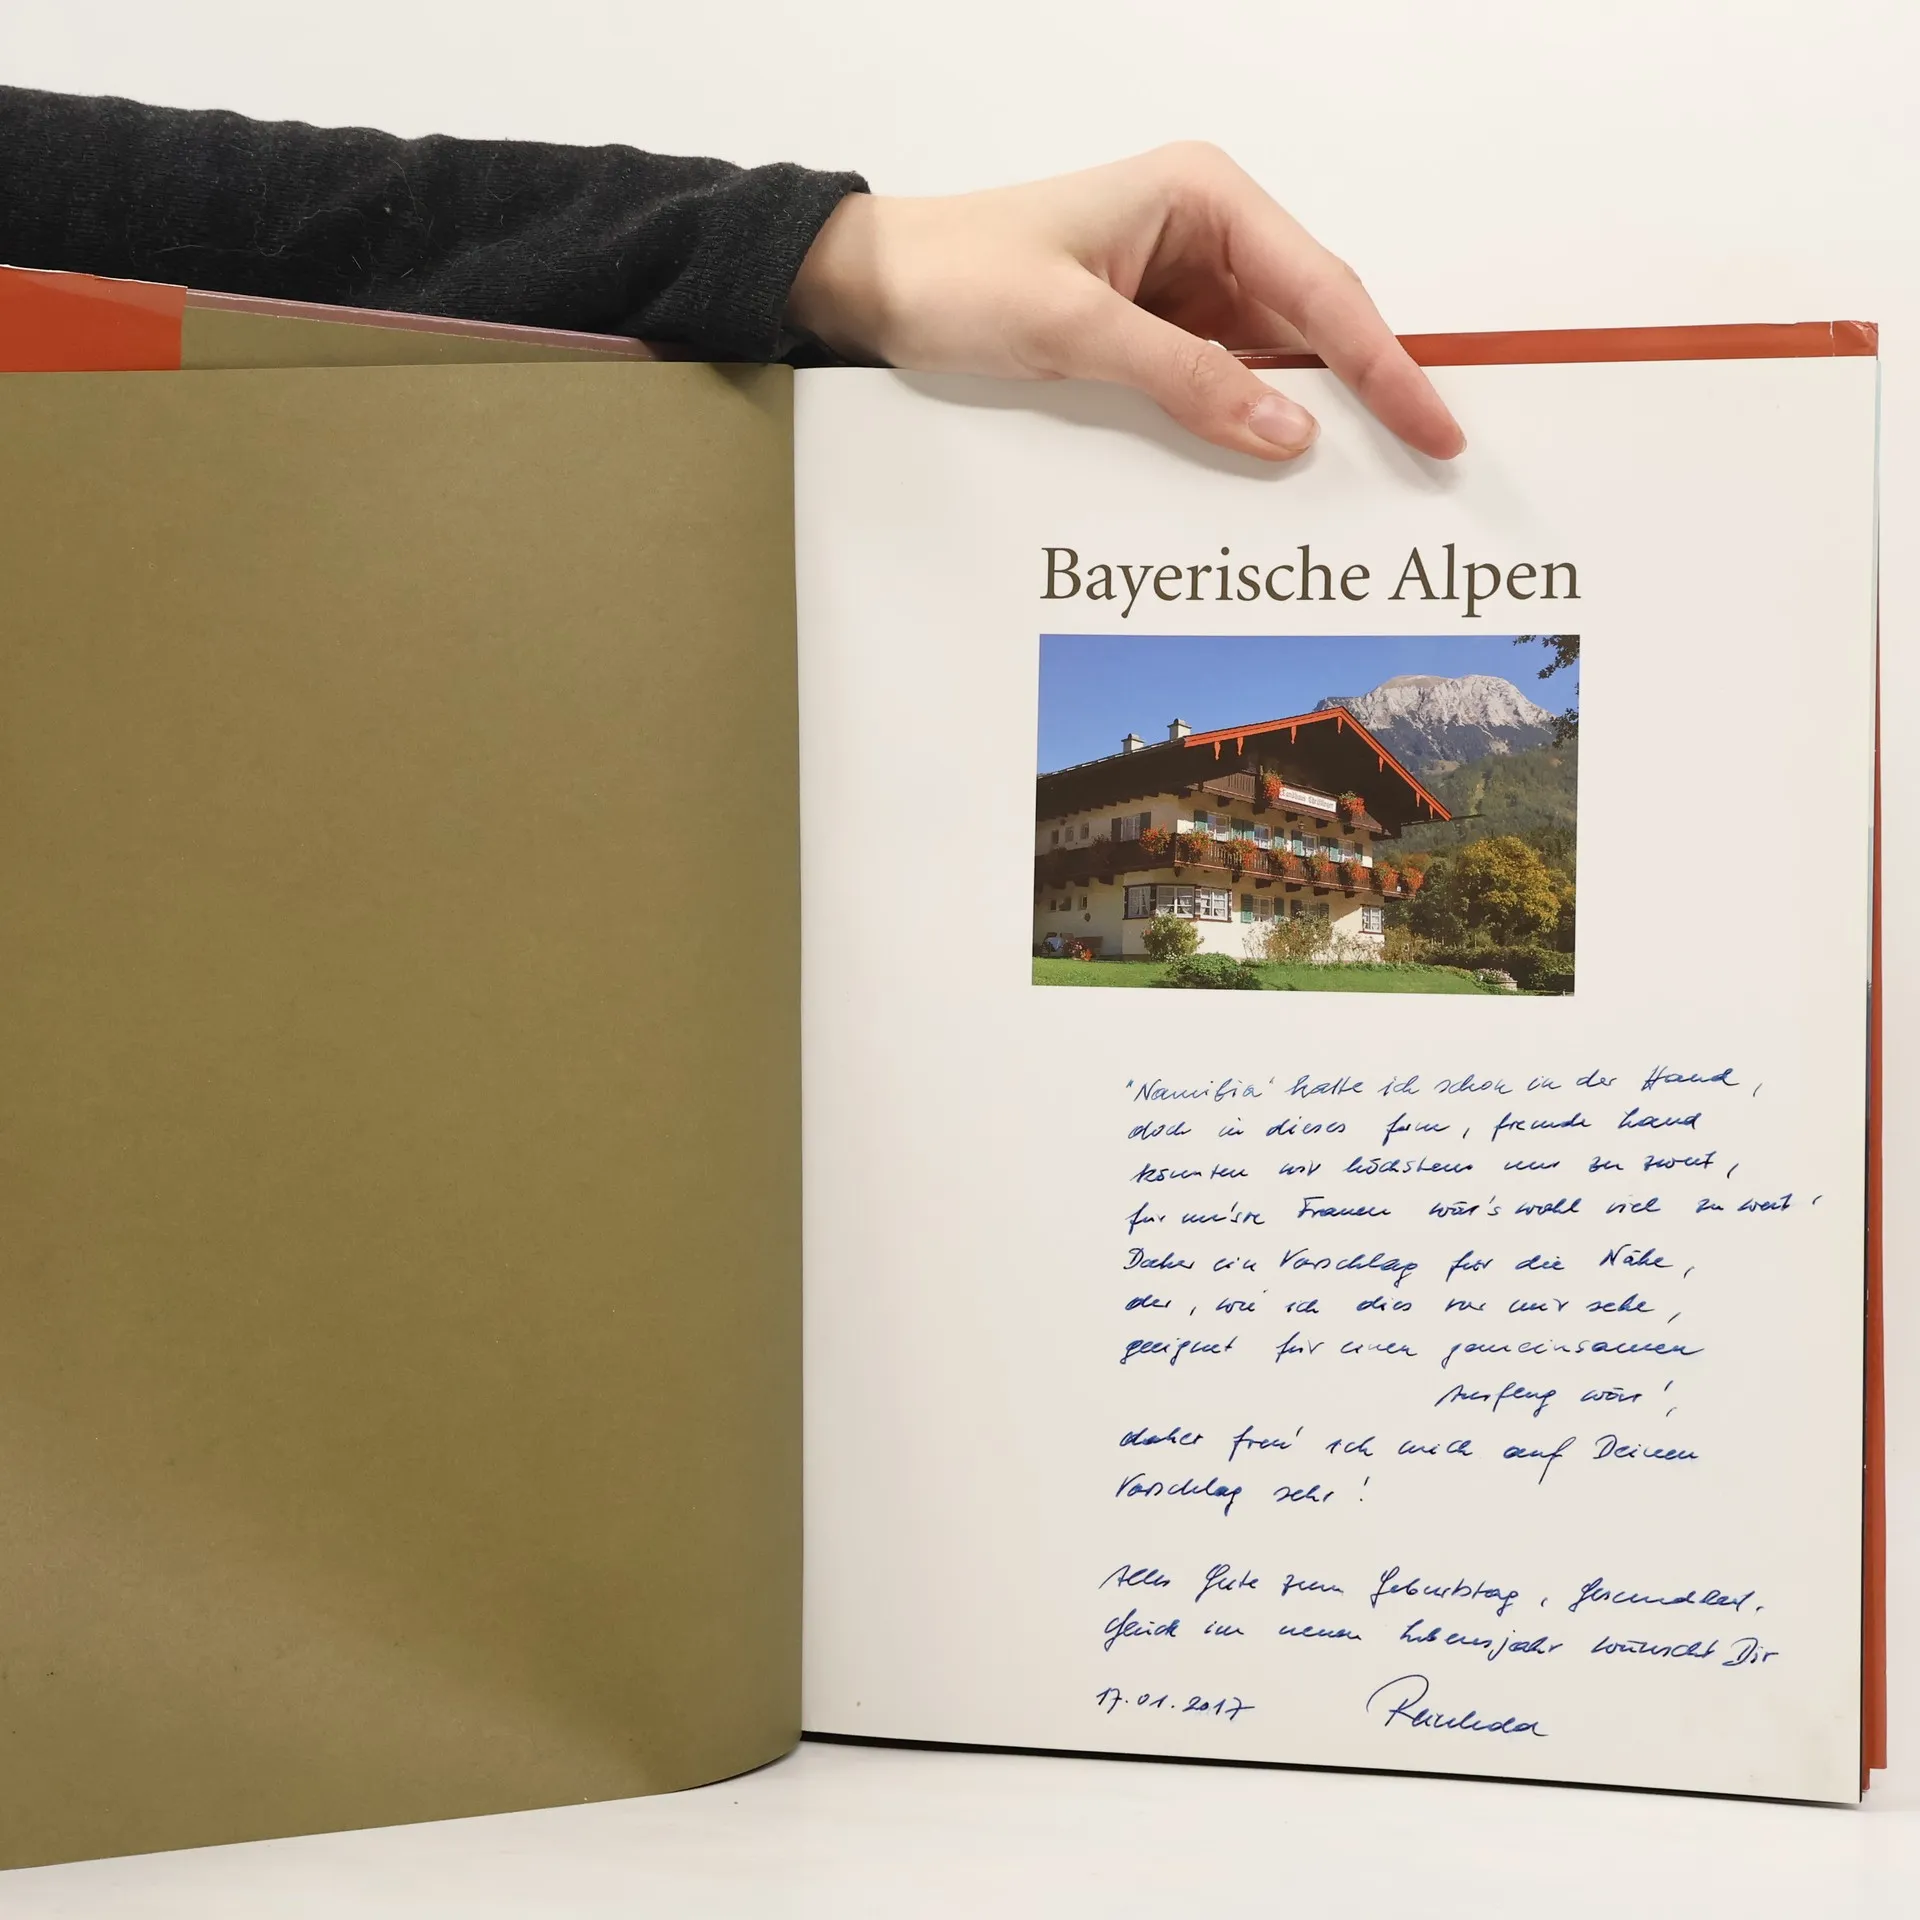 Bayerische Alpen
"Namibia" hatte ich schon in der Hand,
doch in dieses ferne, fremde Land
könnten wir höchstens nur zu zweit,
für uns're Frauen wär's wohl viel zu weit!
Daher ein Vorschlag für die Nähe,
der, wie ich dies vor mir sehe,
geeignet für einen gemeinsamen
Ausflug wär!,
daher freu' ich mich auf Deinen
Vorschlag sehr!
Alles Gute zum Geburtstag, Gesundheit,
Glück im neuen Lebensjahr wünscht Dir
17.01.2017